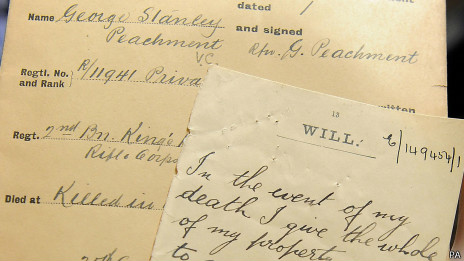 dated 1
Name George Stanley
Peachment
V.C.
and signed
Rfn. G. Peachment
Regtl. No.
and Rank
R/11941 Priva
written
Regt. 2nd Bn. King's
Rifle Corps
Died at Killed in
13
WILL.
E/149454/1
In the event of my
death I give the whole
of my property
to
PA